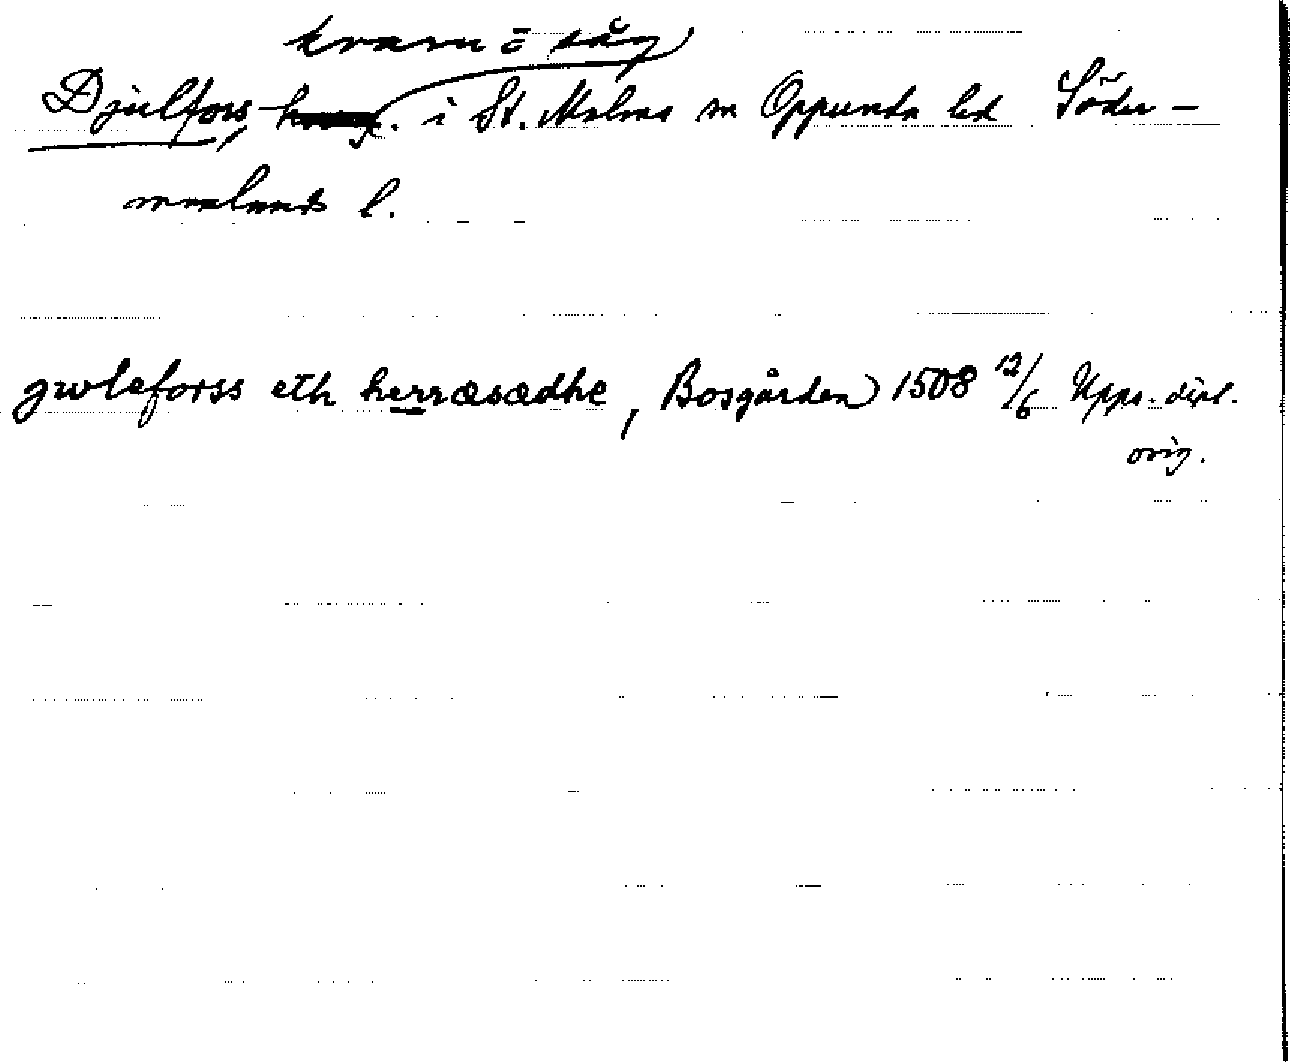 kvarn o såg
Djulfors, i St. Malms sn Oppunda hd Söder-
manlands l.
gwleforss eth herræsædhe, Bosgården 1508 12/6 Upps. dipl.
orig.